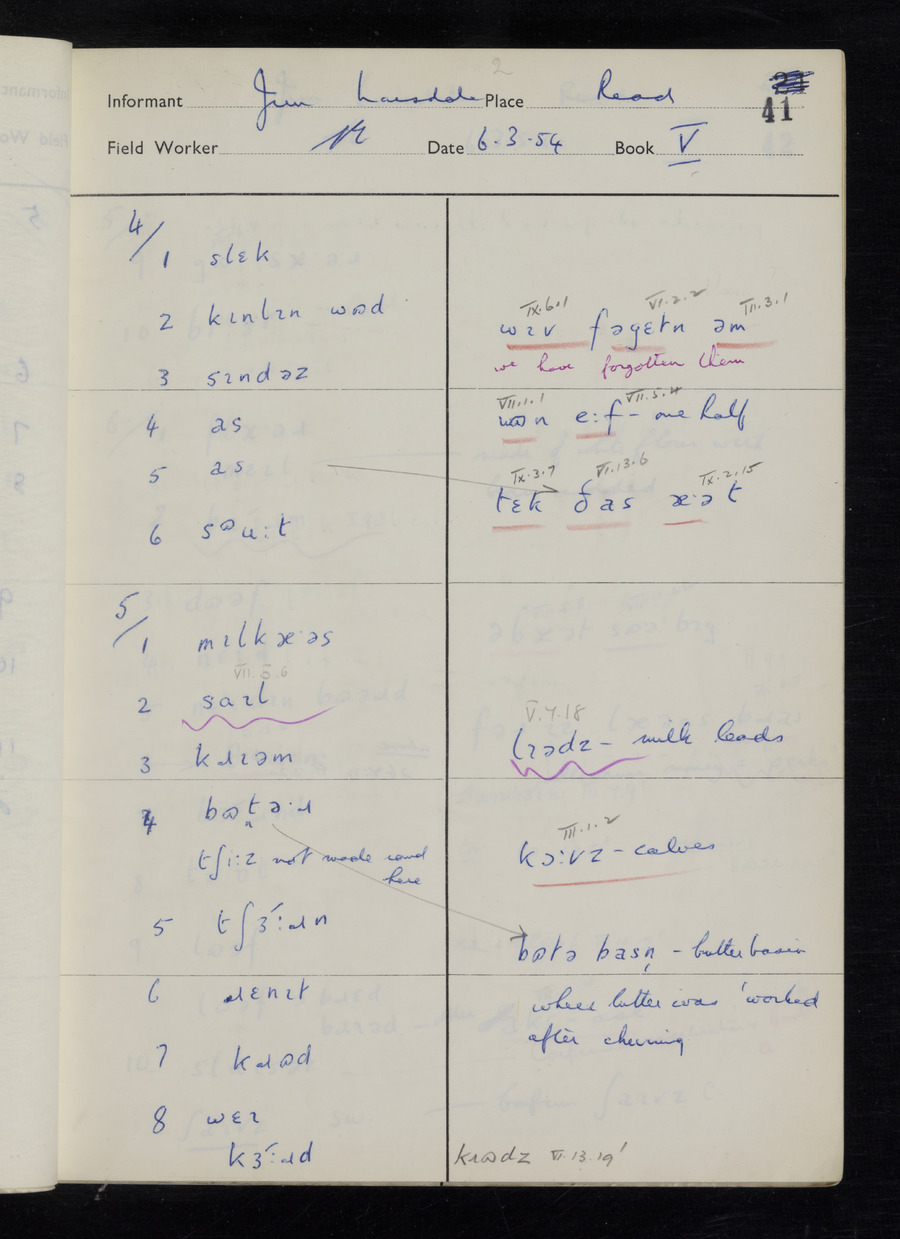 2
Informant Jim Place Read
41
Field Worker Date 6.3.54 Book V
4/
1 slɛk
2 kɪnlɪn wɒd
3 sɪndəz
4 as
5 as
6 sɷu:t
5/
1 mɪlkæ·əs
VII.5.6
2 saɪl
3 kɹɪəm
4 bɷtə·ɹ
tʃi:z not made round
here
5 tʃɜ´:ɹn
6 ɹɛnɪt
7 kɹɷd
8 wɛɪ
kɜ´:ɹd
IX.6.1 VI.2.2 III.3.1
wɪv fəgɛtn əm
we have forgotten them
VII.1.1 VII.5.4
wɷn e:f – one half
IX.3.7 VI.13.6 IX.2.15
tɛk ðas æ·ət
V.9.18
lɪədz – milk leads
III.1.2
kɔ:vz – calves
bɷtə basn̩ – butter basin
where butter was 'worked
after churning
kɹɷdz VI.13.19'